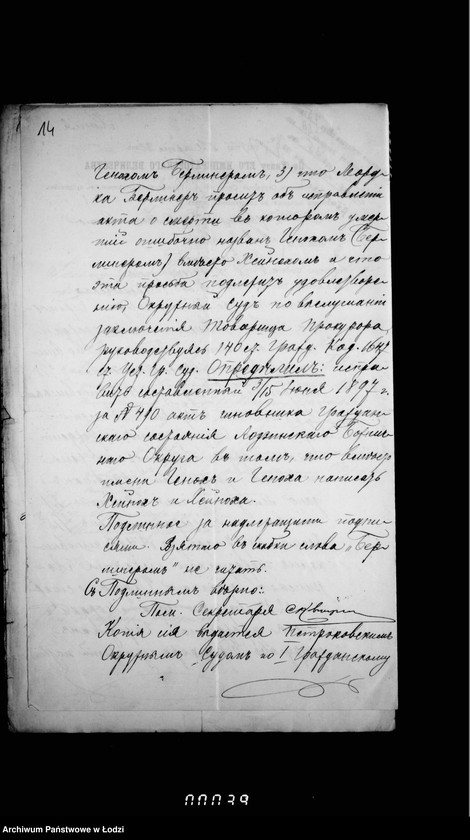 14
Генохомъ Берлинеромъ, 3) что Мордка
ха Берлинеръ проситъ объ исправленіи
акта о смерти въ которомъ умер-
шій ошибочно названъ Генохомъ (Бер-
линеромъ) вмѣсто Хейнохомъ и что
эта просьба подлежитъ удовлетворе-
нію, Окружный Судъ по выслушаніи
заключенія Товарища Прокурора,
руководствуясь 140 ст. Гражд. Код. 1647
ст. Уст. Гр. Суд. Опредѣлилъ: испра-
вить составленный 3/15 Іюня 1897 г.
за № 410 актъ чиновника граждан-
скаго состоянія Лодзинскаго
Округа въ томъ, что вмѣсто
имени Генохъ и Геноха написать
Хейнохъ и Хейноха.
Подлинное за надлежащими подпи-
сями. Взятыя въ скобки слова „Бер-
линеромъ" не читать.
Съ Подлиннымъ вѣрно:
Пом. Секретаря
Копія сія выдается Петроковскимъ
Окружнымъ Судомъ по I Гражданскому
00039
Archiwum Państwowe w Łodzi